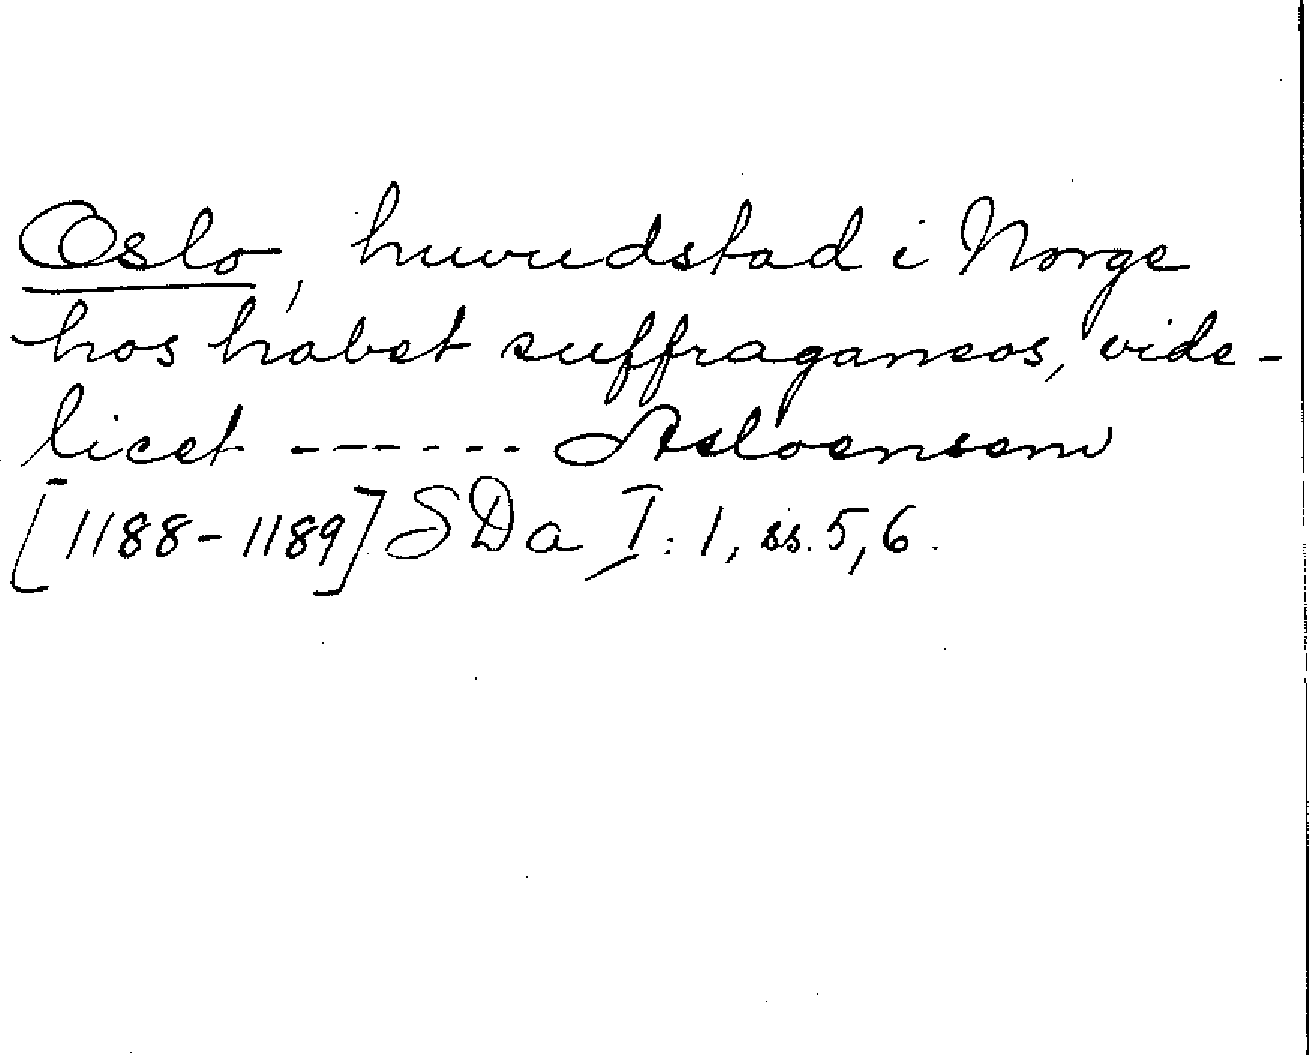 Oslo, huvudstad i Norge
hos habet suffraganeos, vide-
licet ------ Asloensem
[1188-1189] SDa I:1, ss. 5,6.